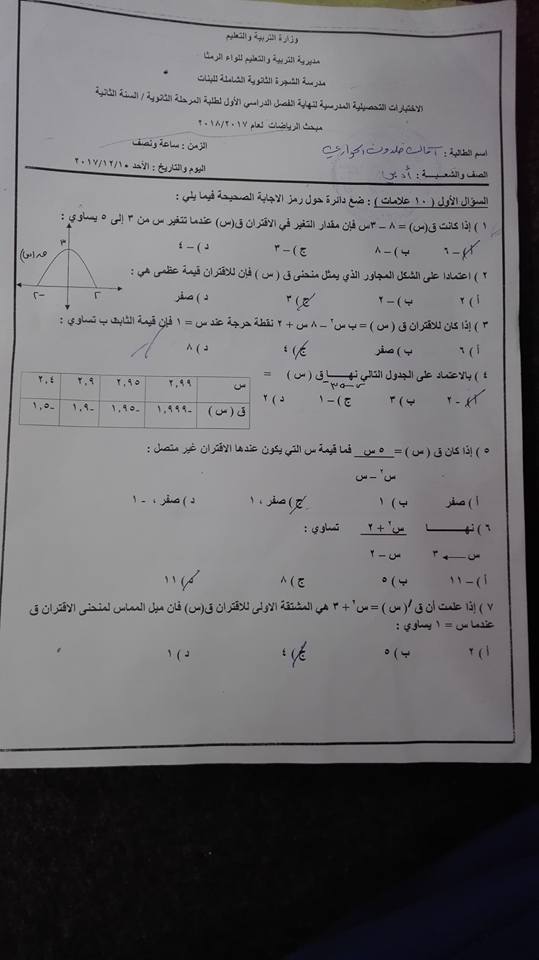 وزارة التربية والتعليم
مديرية التربية والتعليم للواء الرمثا
مدرسة الشجرة الثانوية الشاملة للبنات
الاختبارات التحصيلية المدرسية لنهاية الفصل الدراسي الأول لطلبة المرحلة الثانوية / السنة الثانية
مبحث الرياضيات لعام ٢٠١٨/٢٠١٧
اسم الطالبة : خلدون الزمن : ساعة ونصف
الصف والشعبة : أدبي اليوم والتاريخ : الأحد ٢٠١٧/١٢/١٠
السؤال الأول ( ١٠ علامات ) : ضع دائرة حول رمز الاجابة الصحيحة فيما يلي :
١ ) إذا كانت ق(س) = ٨ – ٣س فإن مقدار التغير في الاقتران ق(س) عندما تتغير س من ٣ إلى ٥ يساوي :
أ) – ٦ ب) – ٨ ج) – ٣ د) – ٤
٢ ) اعتمادا على الشكل المجاور الذي يمثل منحنى ق ( س ) فإن للاقتران قيمة عظمى هي :
أ ) ٢ ب) – ٢ ج) ٣ د ) صفر
٣ ق(س)
-٢ ٢
٣ ) إذا كان للاقتران ق ( س ) = ب س٢ – ٨ س + ٢ نقطة حرجة عند س = ١ فإن قيمة الثابت ب تساوي :
أ ) ٦ ب ) صفر ج) ٤ د ) ٨
٤ ) بالاعتماد على الجدول التالي نهـــا ق ( س ) =
س←٣-
أ) - ٢ ب) ٣ ج ) – ١ د ) ٢
س ٢,٩٩ ٢,٩٥ ٢,٩ ٢,٤
ق ( س ) -١,٩٩٩ -١,٩٥ -١,٩ -١,٥
٥ ) إذا كان ق ( س ) = ٥ س فما قيمة س التي يكون عندها الاقتران غير متصل :
س٢ – س
أ ) صفر ب ) ١ ج) صفر ، ١ د ) صفر ، - ١
٦ ) نهـــــا س٢ + ٢ تساوي :
س ← ٣ س – ٢
أ ) – ١١ ب ) ٥ ج ) ٨ د) ١١
٧ ) إذا علمت أن ق/( س ) = س٢ + ٣ هي المشتقة الاولى للاقتران ق(س) فإن ميل المماس لمنحنى الاقتران ق
عندما س = ١ يساوي :
أ ) ٢ ب ) ٥ ج) ٤ د ) ١